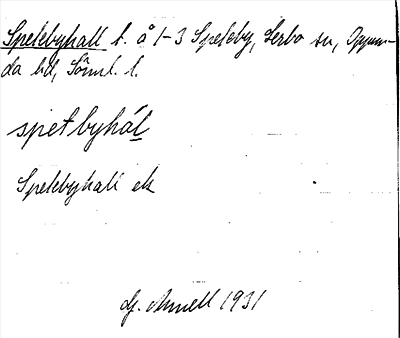 Spelebyhall t. å 1-3 Speleby, Lerbo sn, Oppun-
da hd, Söml. l.
spetbyhál
Spelebyhall ek
Gj. Ahnell 1931